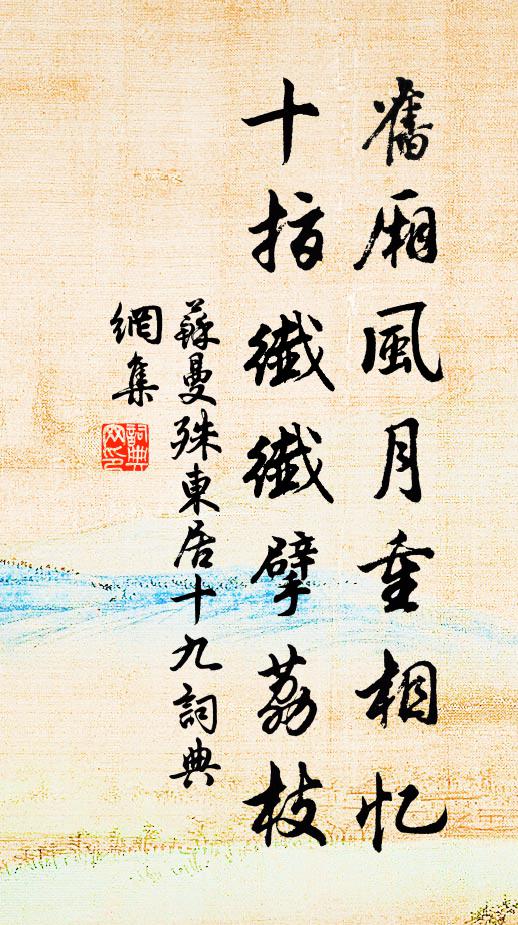 舊廂風月重相忆
十指纖纖擘荔枝
蘇曼殊東居十九詞典
網集